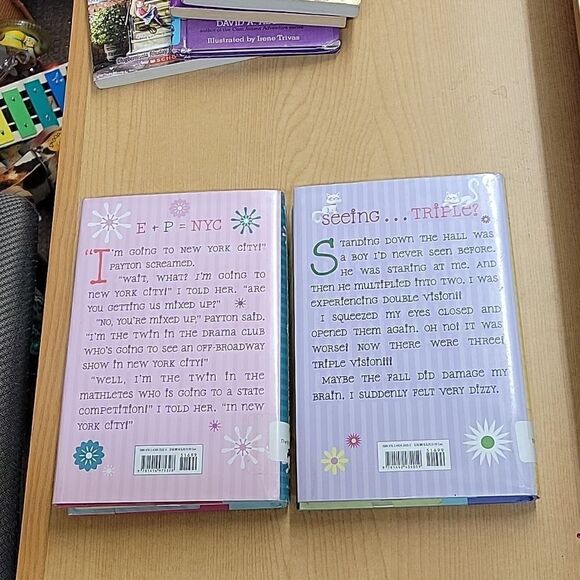 DAVID A.
Illustrated by Irene Trivas
SCHO
E + P = NYC
"I'm going to New York City!"
Payton screamed.
"Wait, what? I'm going to
New York City!" I told her. "Are
you getting us mixed up?"
"No, you're mixed up," Payton said.
"I'm the twin in the Drama Club
who's going to see an off-Broadway
show in New York City!"
"Well, I'm the twin in the
Mathletes who is going to a state
competition!" I told her. "In New
York City!"
51699
seeing... TRIPLE?
Standing down the hall was
a boy I'd never seen before.
He was staring at me. And
then he multiplied into two. I was
experiencing double vision!!!
I squeezed my eyes closed and
opened them again. Oh no! It was
worse! Now there were three!
Triple vision!!!
Maybe the fall did damage my
brain. I suddenly felt very dizzy.
51699